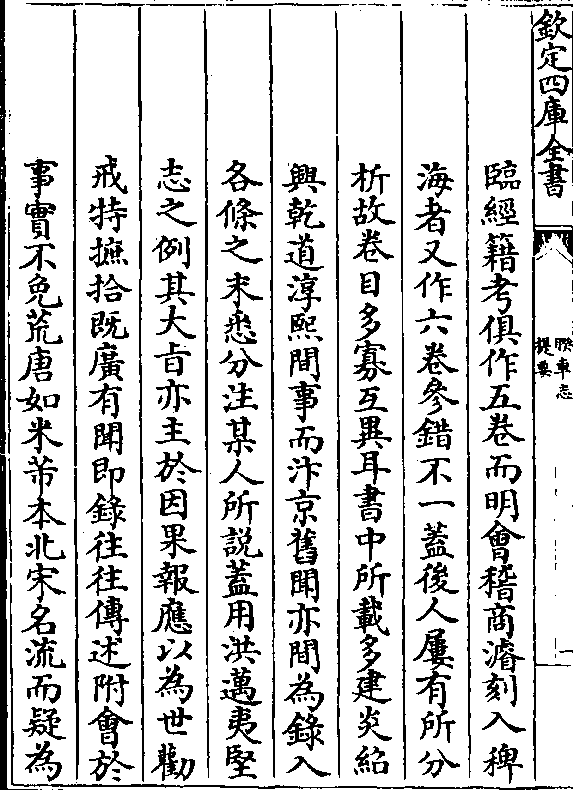 欽定四庫全書
睽車志
提要
一
臨經籍考俱作五卷而明會稽商濬刻入稗
海者又作六卷參錯不一蓋後人屢有所分
析故卷目多寡互異耳書中所載多建炎紹
興乾道淳熙間事而汴京舊聞亦間為錄入
各條之末悉分注某人所説蓋用洪邁夷堅
志之例其大㫖亦主於因果報應以為世勸
戒特摭拾既廣有聞即錄往往傳述附會於
事實不免荒唐如米芾本北宋名流而疑為